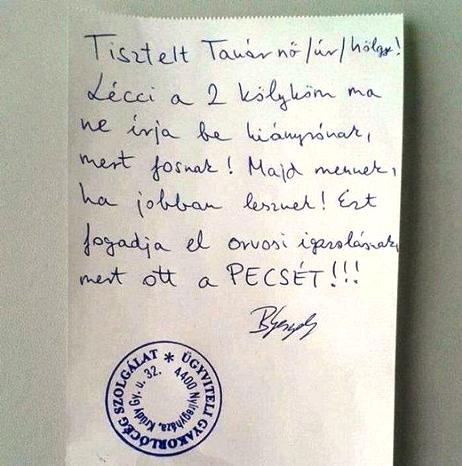 Tisztelt Tanár nő/úr/hölgy!
Lécci a 2 kölyköm ma
ne írja be hiányzónak,
mert fosnak! Majd mennek,
ha jobban lesznek! Ezt
fogadja el orvosi igazolásnak,
mert ott a PECSÉT!!!
ÜGYVITELI GYAKORLÓCÉG SZOLGÁLAT *
4400 Nyíregyháza, Krúdy Gy. u. 32.